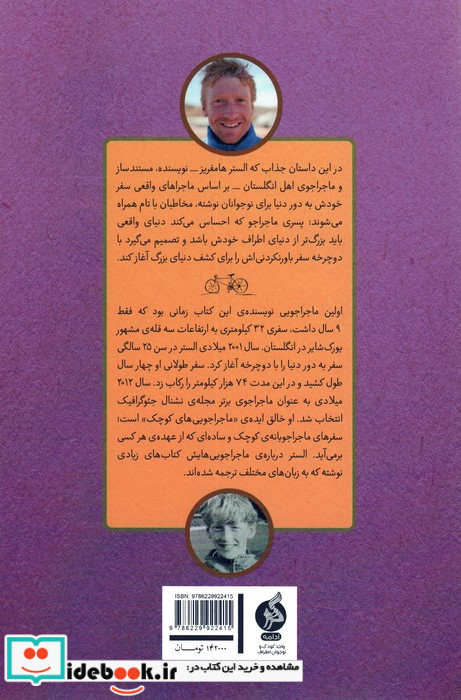 در این داستان جذاب که الستر هامفریز ــ نویسنده، مستندساز
و ماجراجوی اهل انگلستان ــ بر اساس ماجراهای واقعی سفر
خودش به دور دنیا برای نوجوانان نوشته، مخاطبان با تام همراه
می‌شوند؛ پسری ماجراجو که احساس می‌کند دنیای واقعی
باید بزرگ‌تر از دنیای اطراف خودش باشد و تصمیم می‌گیرد با
دوچرخه سفر باورنکردنی‌اش را برای کشف دنیای بزرگ آغاز کند.
اولین ماجراجویی نویسنده‌ی این کتاب زمانی بود که فقط
۹ سال داشت، سفری ۳۲ کیلومتری به ارتفاعات سه قله‌ی مشهور
یورک‌شایر در انگلستان. سال ۲۰۰۱ میلادی الستر در سن ۲۵ سالگی
سفر به دور دنیا را با دوچرخه آغاز کرد. سفر طولانی او چهار سال
طول کشید و در این مدت ۷۴ هزار کیلومتر را رکاب زد. سال ۲۰۱۲
میلادی به عنوان ماجراجوی برتر مجله‌ی نشنال جئوگرافیک
انتخاب شد. او خالق ایده‌ی «ماجراجویی‌های کوچک» است؛
سفرهای ماجراجویانه‌ی کوچک و ساده‌ای که از عهده‌ی هر کسی
برمی‌آید. الستر درباره‌ی ماجراجویی‌هایش کتاب‌های زیادی
نوشته که به زبان‌های مختلف ترجمه شده‌اند.
ISBN: 9786229922415
9 786229 922415
۱۴۲۰۰۰ تومـــان
ادامه
واحد کودک و
نوجوان اطراف
مشاهده و خرید این کتاب در:
idebook.ir